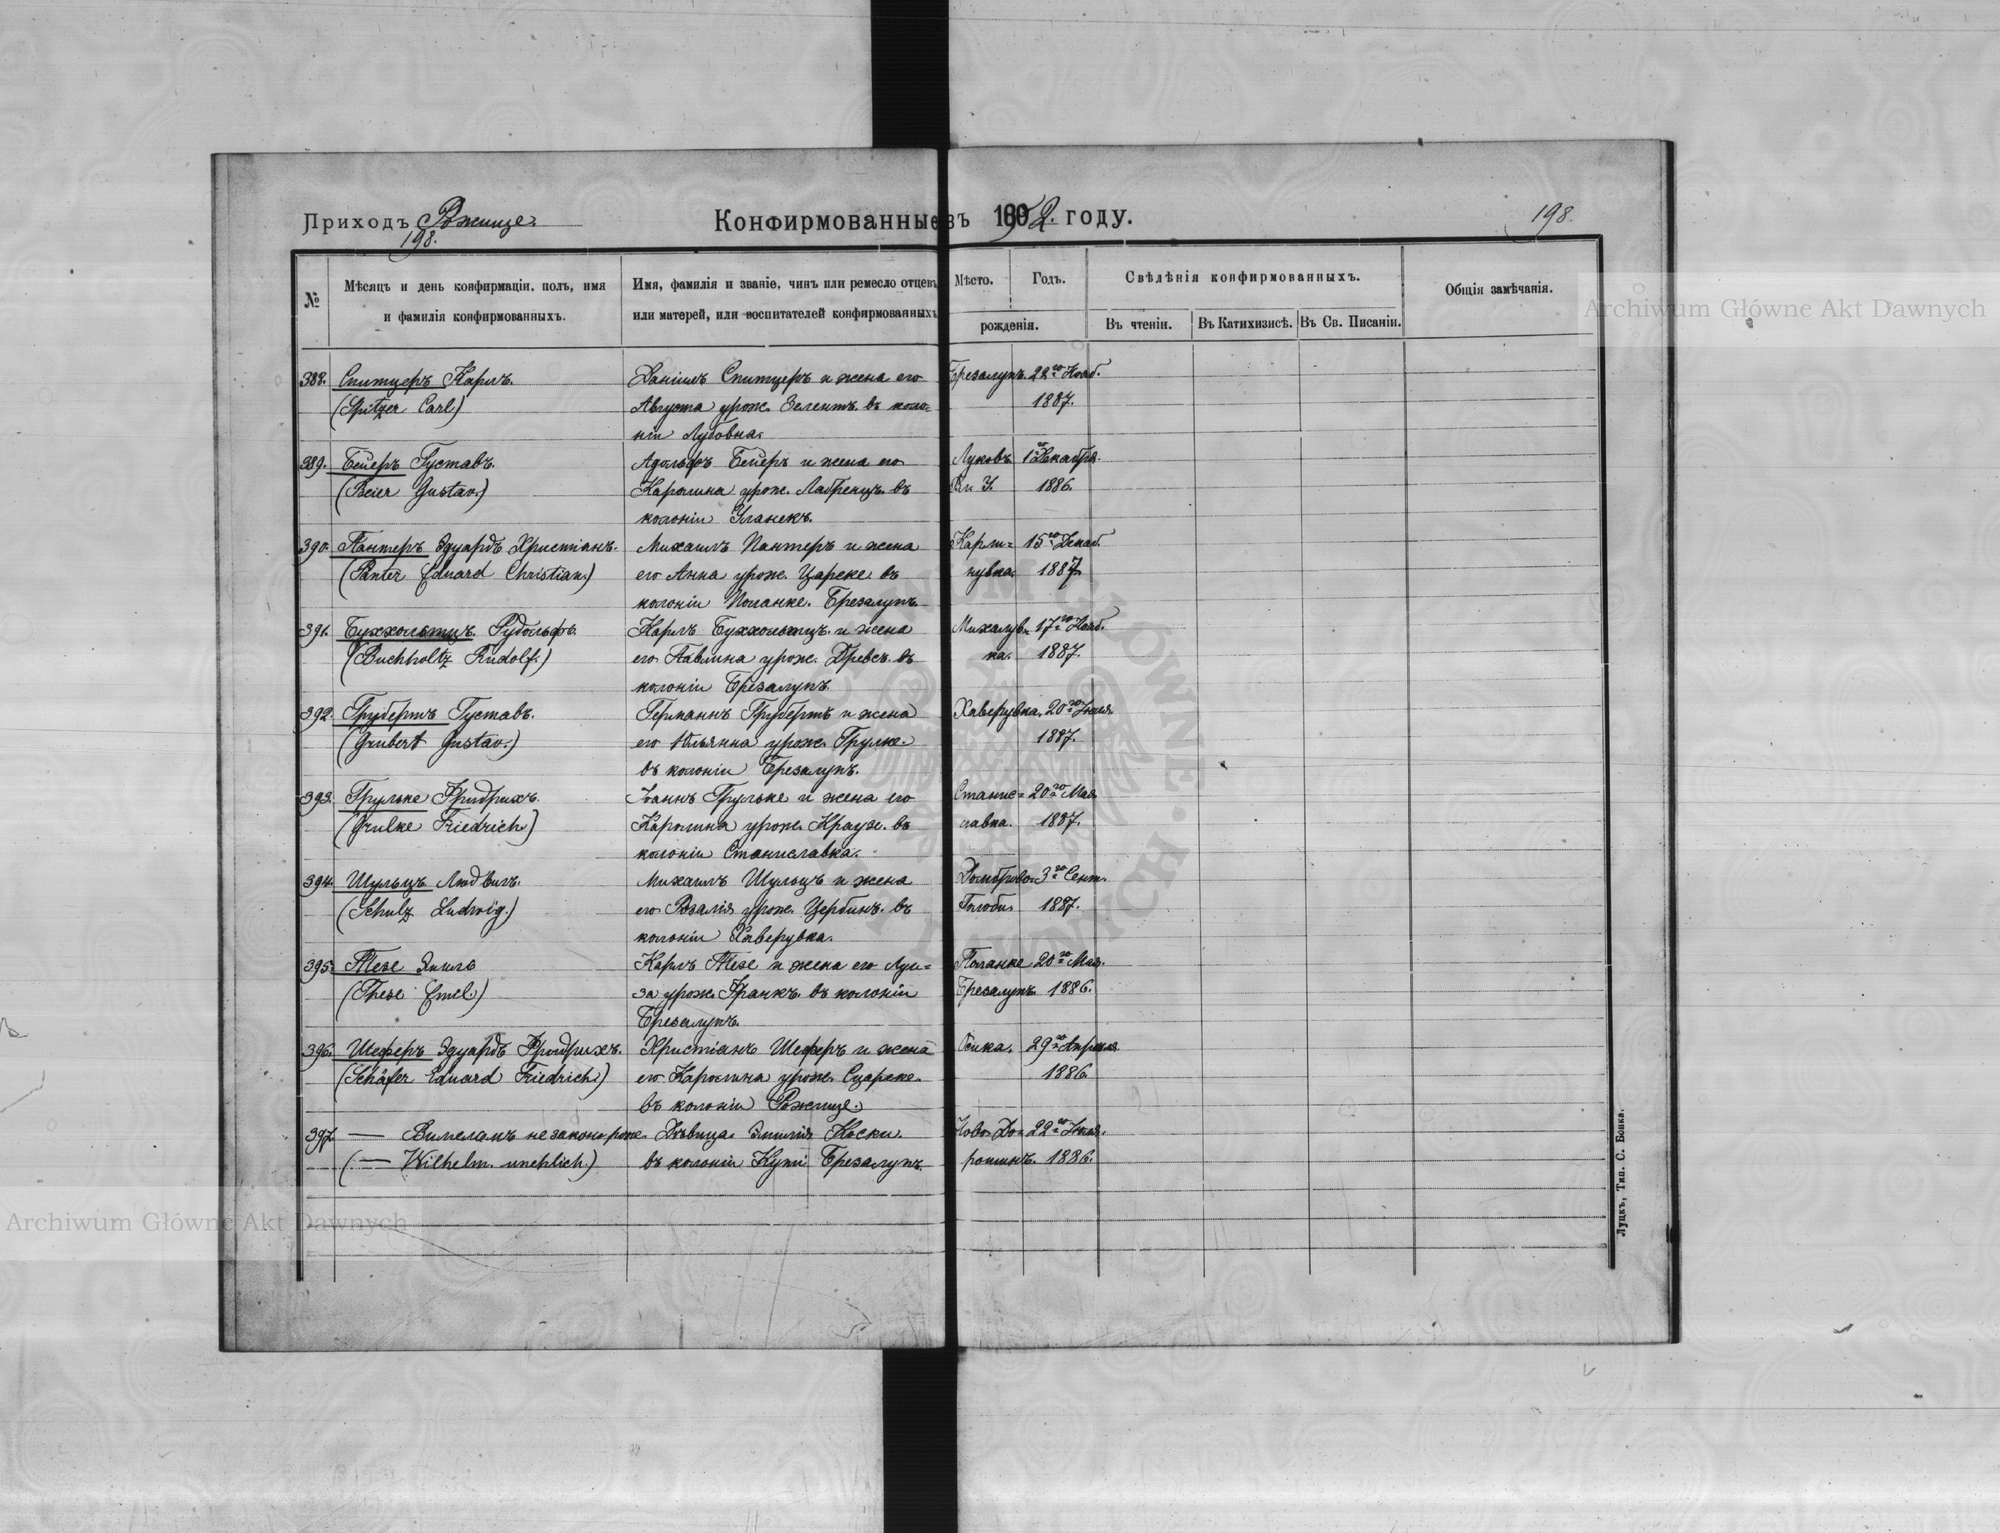 Приходъ Рожище. Конфирмованные въ 1902. году. 198.
198.
№ Мѣсяцъ и день конфирмаціи. полъ, имя и фамилія конфирмованныхъ. Имя, фамилія и званіе, чинъ или ремесло отцевъ или матерей, или воспитателей конфирмованныхъ Мѣсто. Годъ. рожденія. Свѣдѣнія конфирмованныхъ. Въ чтеніи. Въ Катихизисѣ. Въ Св. Писаніи. Общія замѣчанія.
Archiwum Główne Akt Dawnych
388. Спитцеръ Карлъ. Даніилъ Спитцеръ и жена его Брезалупъ. 22го Нояб.
(Spitzer Carl) Августа урож. Зелентъ. въ коло= 1887.
ніи Лубовна.
389. Бейеръ Густавъ. Адольфъ Бейеръ и жена его Луковъ. 1го Декабря.
(Beier Gustav.) Каролина урож. Лабренцъ. въ 1886.
колоніи Уланекъ.
390. Пантеръ Эдуардъ Христіанъ. Михаилъ Пантеръ и жена Карли= 15го Декаб.
(Panter Eduard Christian.) его Анна урож. Царске. въ нувка. 1887.
колоніи Поланке. Брезалупъ.
391. Буххольтцъ. Рудольфъ. Карлъ Буххольтцъ. и жена Михалув= 17го Нояб.
(Buchholtz Rudolf.) его Павлина урож. Древсъ. въ ка. 1887.
колоніи Брезалупъ.
392. Грубертъ Густавъ. Германнъ Грубертъ и жена Хаверувка. 20го Іюля.
(Grubert Gustav.) его Юльянна урож. Грулке. 1887.
въ колоніи Брезалупъ.
393. Грульке Фридрихъ. Іоаннъ Грульке и жена его Станис= 20го Мая
(Grulke Friedrich) Каролина урож. Краузе. въ лавка. 1887.
колоніи Станиславка.
394. Шульцъ Людвигъ. Михаилъ Шульцъ и жена Домброва 3го Сент.
(Schulz Ludwig.) его Розалія урож. Цербинъ. въ 1887.
колоніи Хаверувка.
395. Тезе Эмиль Карлъ Тезе и жена его Луи= Поланке 20го Мая.
(These Emel.) за урож. Франкъ. въ колоніи Брезалупъ 1886.
Брезалупъ.
396. Шеферъ Эдуардъ Фридрихъ. Христіанъ Шеферъ и жена Осика. 29го Апреля
(Schäfer Eduard Friedrich.) его Каролина урож. Сцарске. 1886.
въ колоніи Рожище.
397. — Вилгелмъ незаконорож. Дѣвица. Эмилія Коски. Ново До= 22го Іюля.
(— Wilhelm. unehlich.) въ колоніи Купи Брезалупъ рошинъ. 1886.
Archiwum Główne Akt Dawnych
Луцкъ, Тип. С. Бовка.